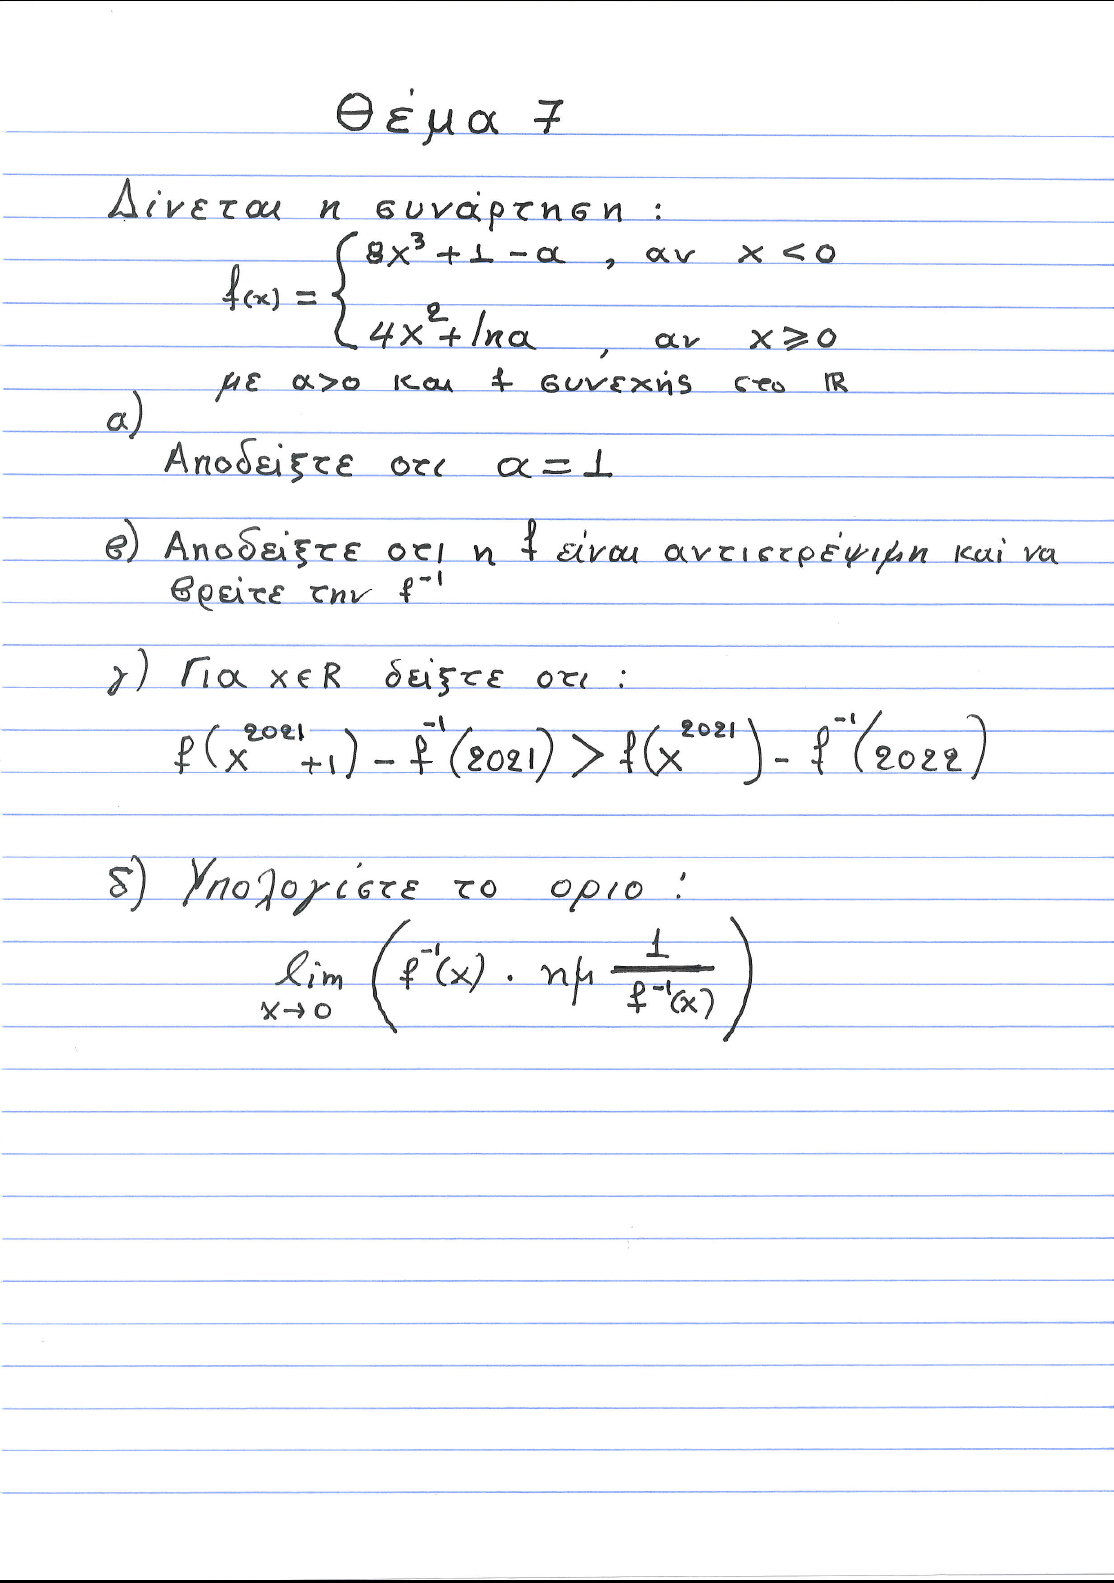 Θέμα 7
Δίνεται η συνάρτηση :
f(x) = { 8x³ + 1 - α , αν x < 0
4x² + lnα , αν x ⩾ 0
με α>0 και f συνεχής στο ℝ
α)
Αποδείξτε οτι α = 1
β) Αποδείξτε οτι η f είναι αντιστρέψιμη καί να
βρείτε την f⁻¹
γ) Για x ∈ R δείξτε οτι :
f(x²⁰²¹ + 1) - f⁻¹(2021) > f(x²⁰²¹) - f⁻¹(2022)
δ) Υπολογίστε το οριο :
lim x→0 ( f⁻¹(x) · ημ 1/f⁻¹(x) )